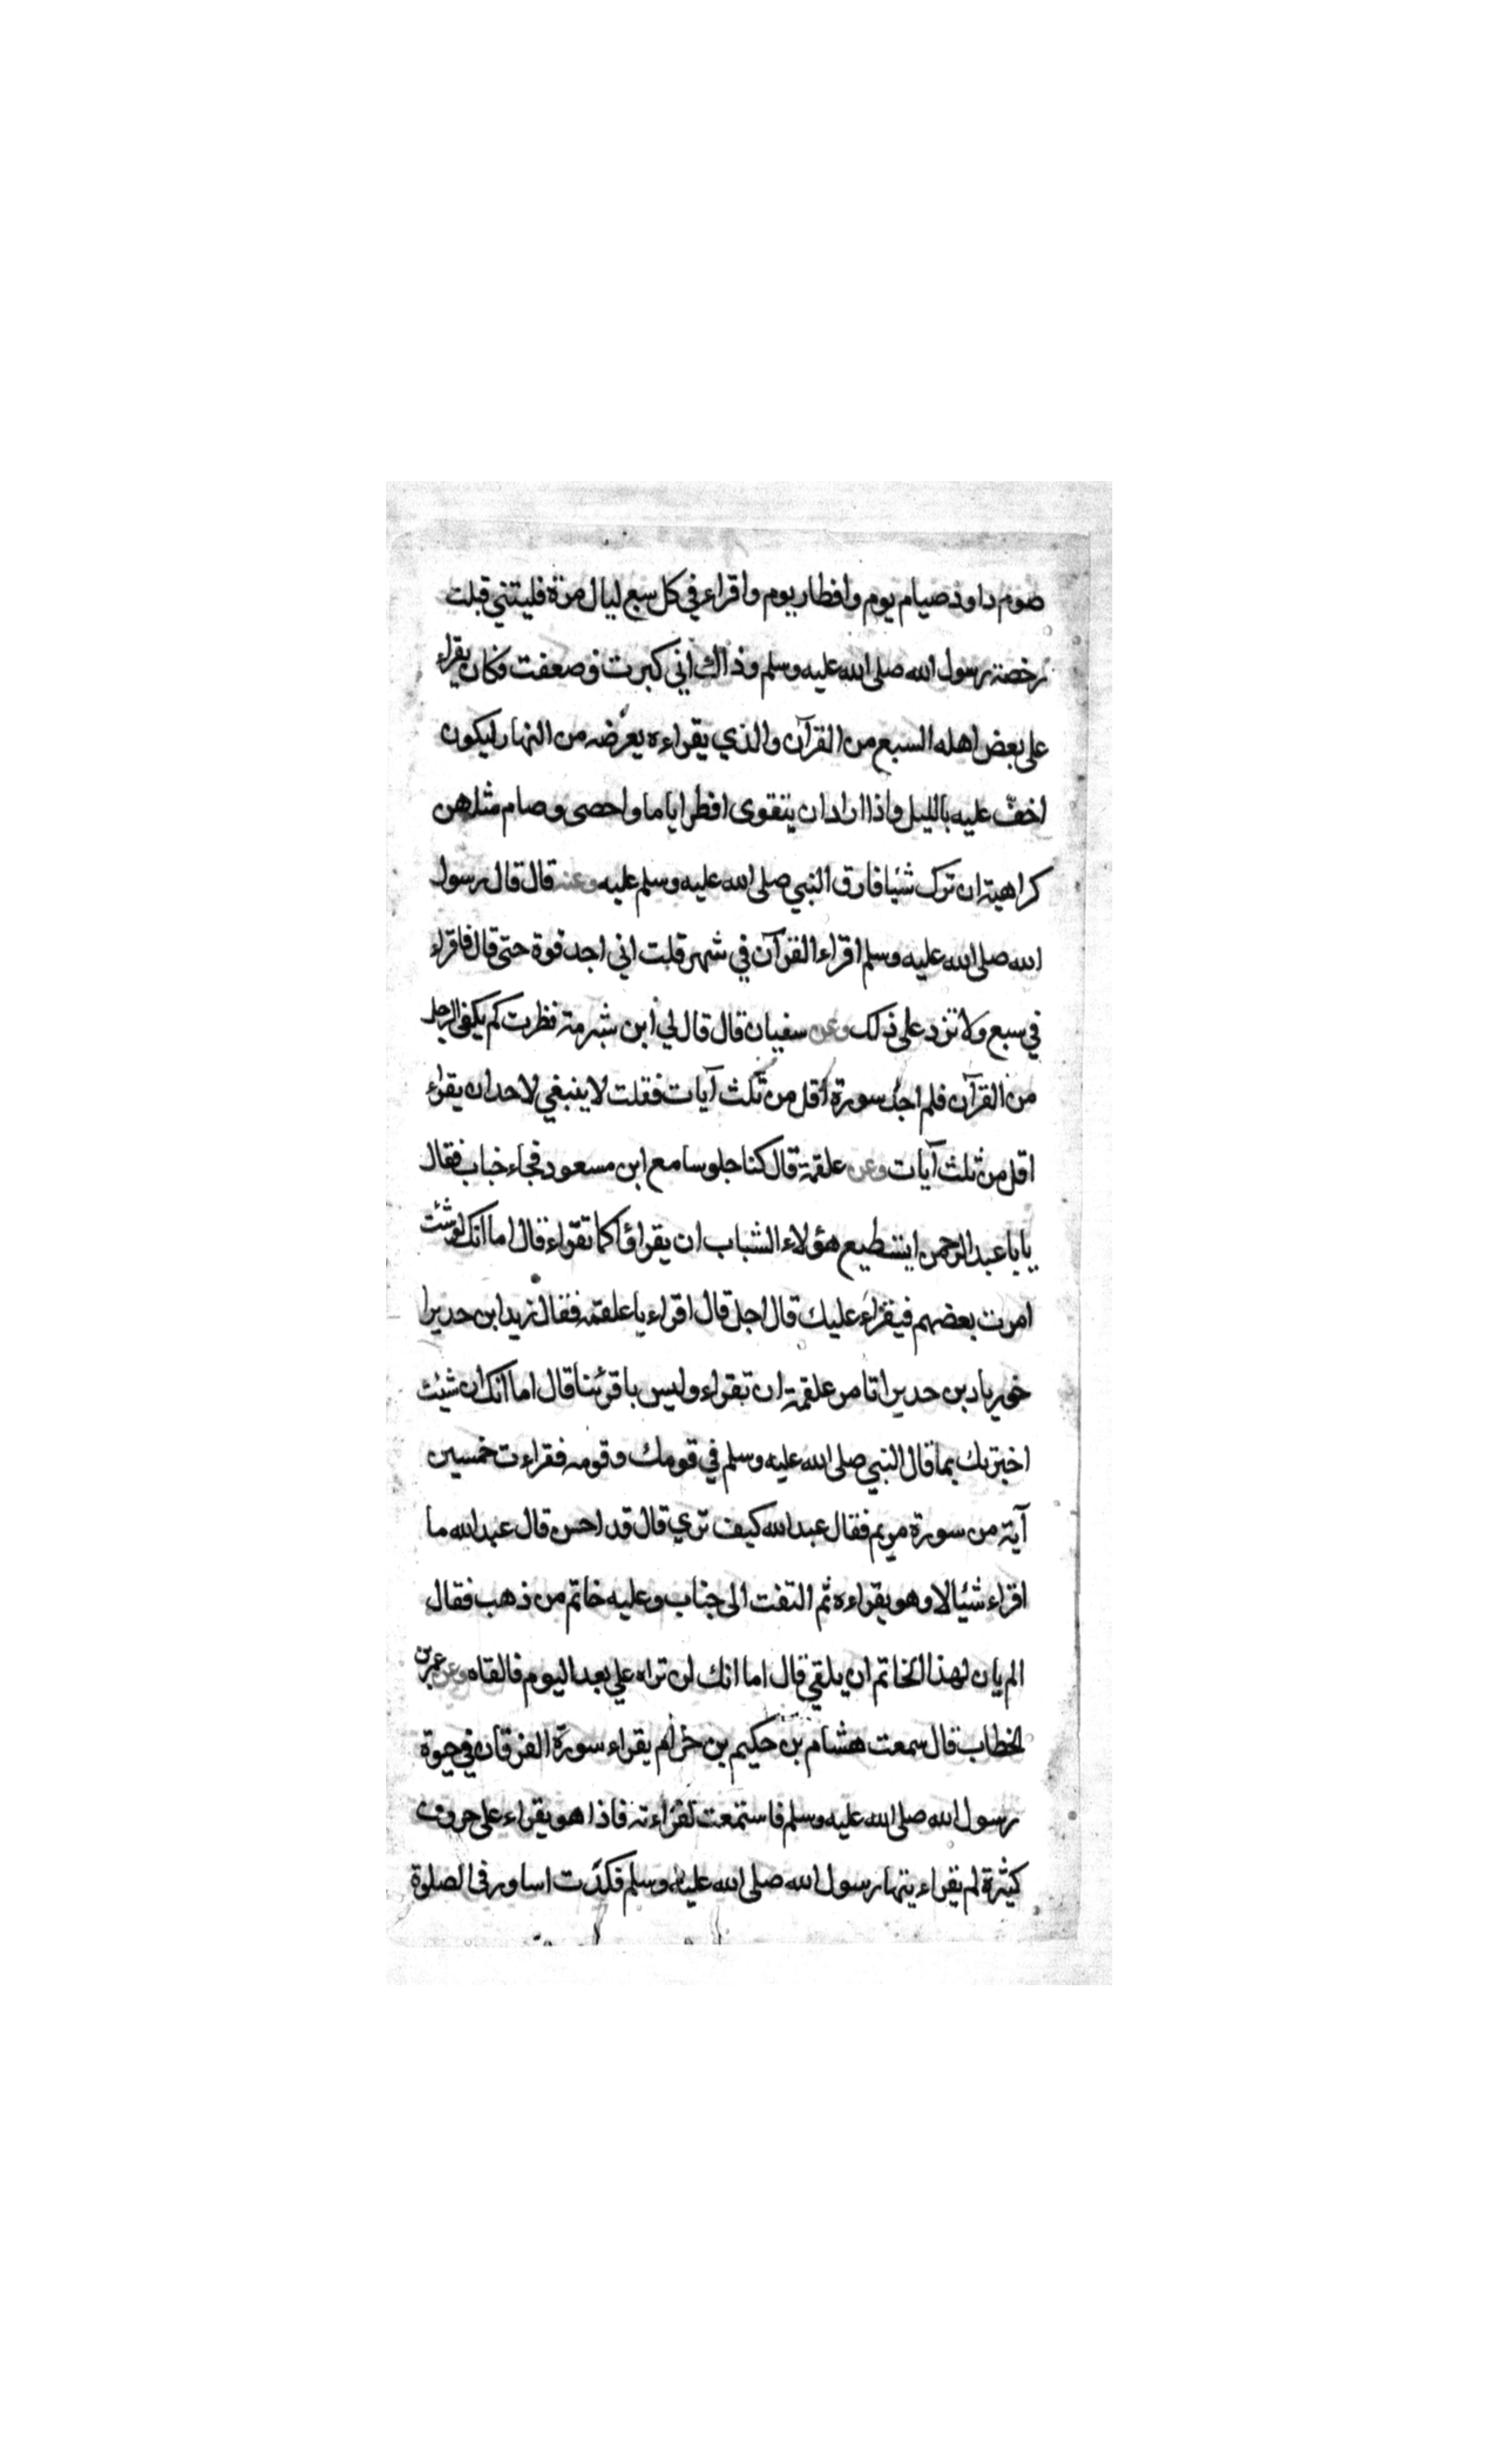 صوم داود صيام يوم وافطار يوم واقراء في كل سبع ليال مرة فليتني قبلت
رخصة رسول الله صلى الله عليه وسلم وذاك اني كبرت وضعفت فكان يقراء
على بعض اهله السبع من القرآن والذي يقراءه يعرضه من النهار ليكون
اخفّ عليه بالليل واذا اراد ان يتقوى افطر اياما واحصى وصام مثلهن
كراهية ان ترك شيئا فارق النبي صلى الله عليه وسلم عليه وعنه قال قال رسول
الله صلى الله عليه وسلم اقراء القرآن في شهر قلت اني اجد قوة حتى قال فاقراء
في سبع ولا تزد على ذلك وعن سفيان قال قال لي ابن شبرمة نظرت كم يكفي الرجل
من القرآن فلم اجد سورة اقل من ثلث آيات فقلت لا ينبغي لاحد ان يقراء
اقل من ثلث آيات وعن علقمة قال كنا جلوسا مع ابن مسعود فجاء خباب فقال
يابا عبد الرحمن ايستطيع هؤلاء الشباب ان يقراؤا كما تقراء قال اما انك لوشئت
امرت بعضهم فيقراء عليك قال اجل قال اقراء يا علقمة فقال زيد ابن حدير ا
خو زياد بن حدير اتامر علقمة ان تقراء وليس باقرئنا قال اما انك ان شيئت
اخبرتك بما قال النبي صلى الله عليه وسلم في قومك وقومه فقراءت خمسين
آية من سورة مريم فقال عبد الله كيف تري قال قد احسن قال عبد الله ما
اقراء شيئا الا وهو يقراءه ثم التفت الى خباب وعليه خاتم من ذهب فقال
الم يان لهذا الخاتم ان يلقي قال اما انك لن تراه علي بعد اليوم فالقاه وعن عمر بن
لخطاب قال سمعت هشام بن حكيم بن حزام يقراء سورة الفرقان في حيوة
رسول الله صلى الله عليه وسلم فاستمعت لقراءته فاذا هو يقراء على حروف
كثيرة لم يقراء ينها رسول الله صلى الله عليه وسلم فكدّت اساوره في الصلوة